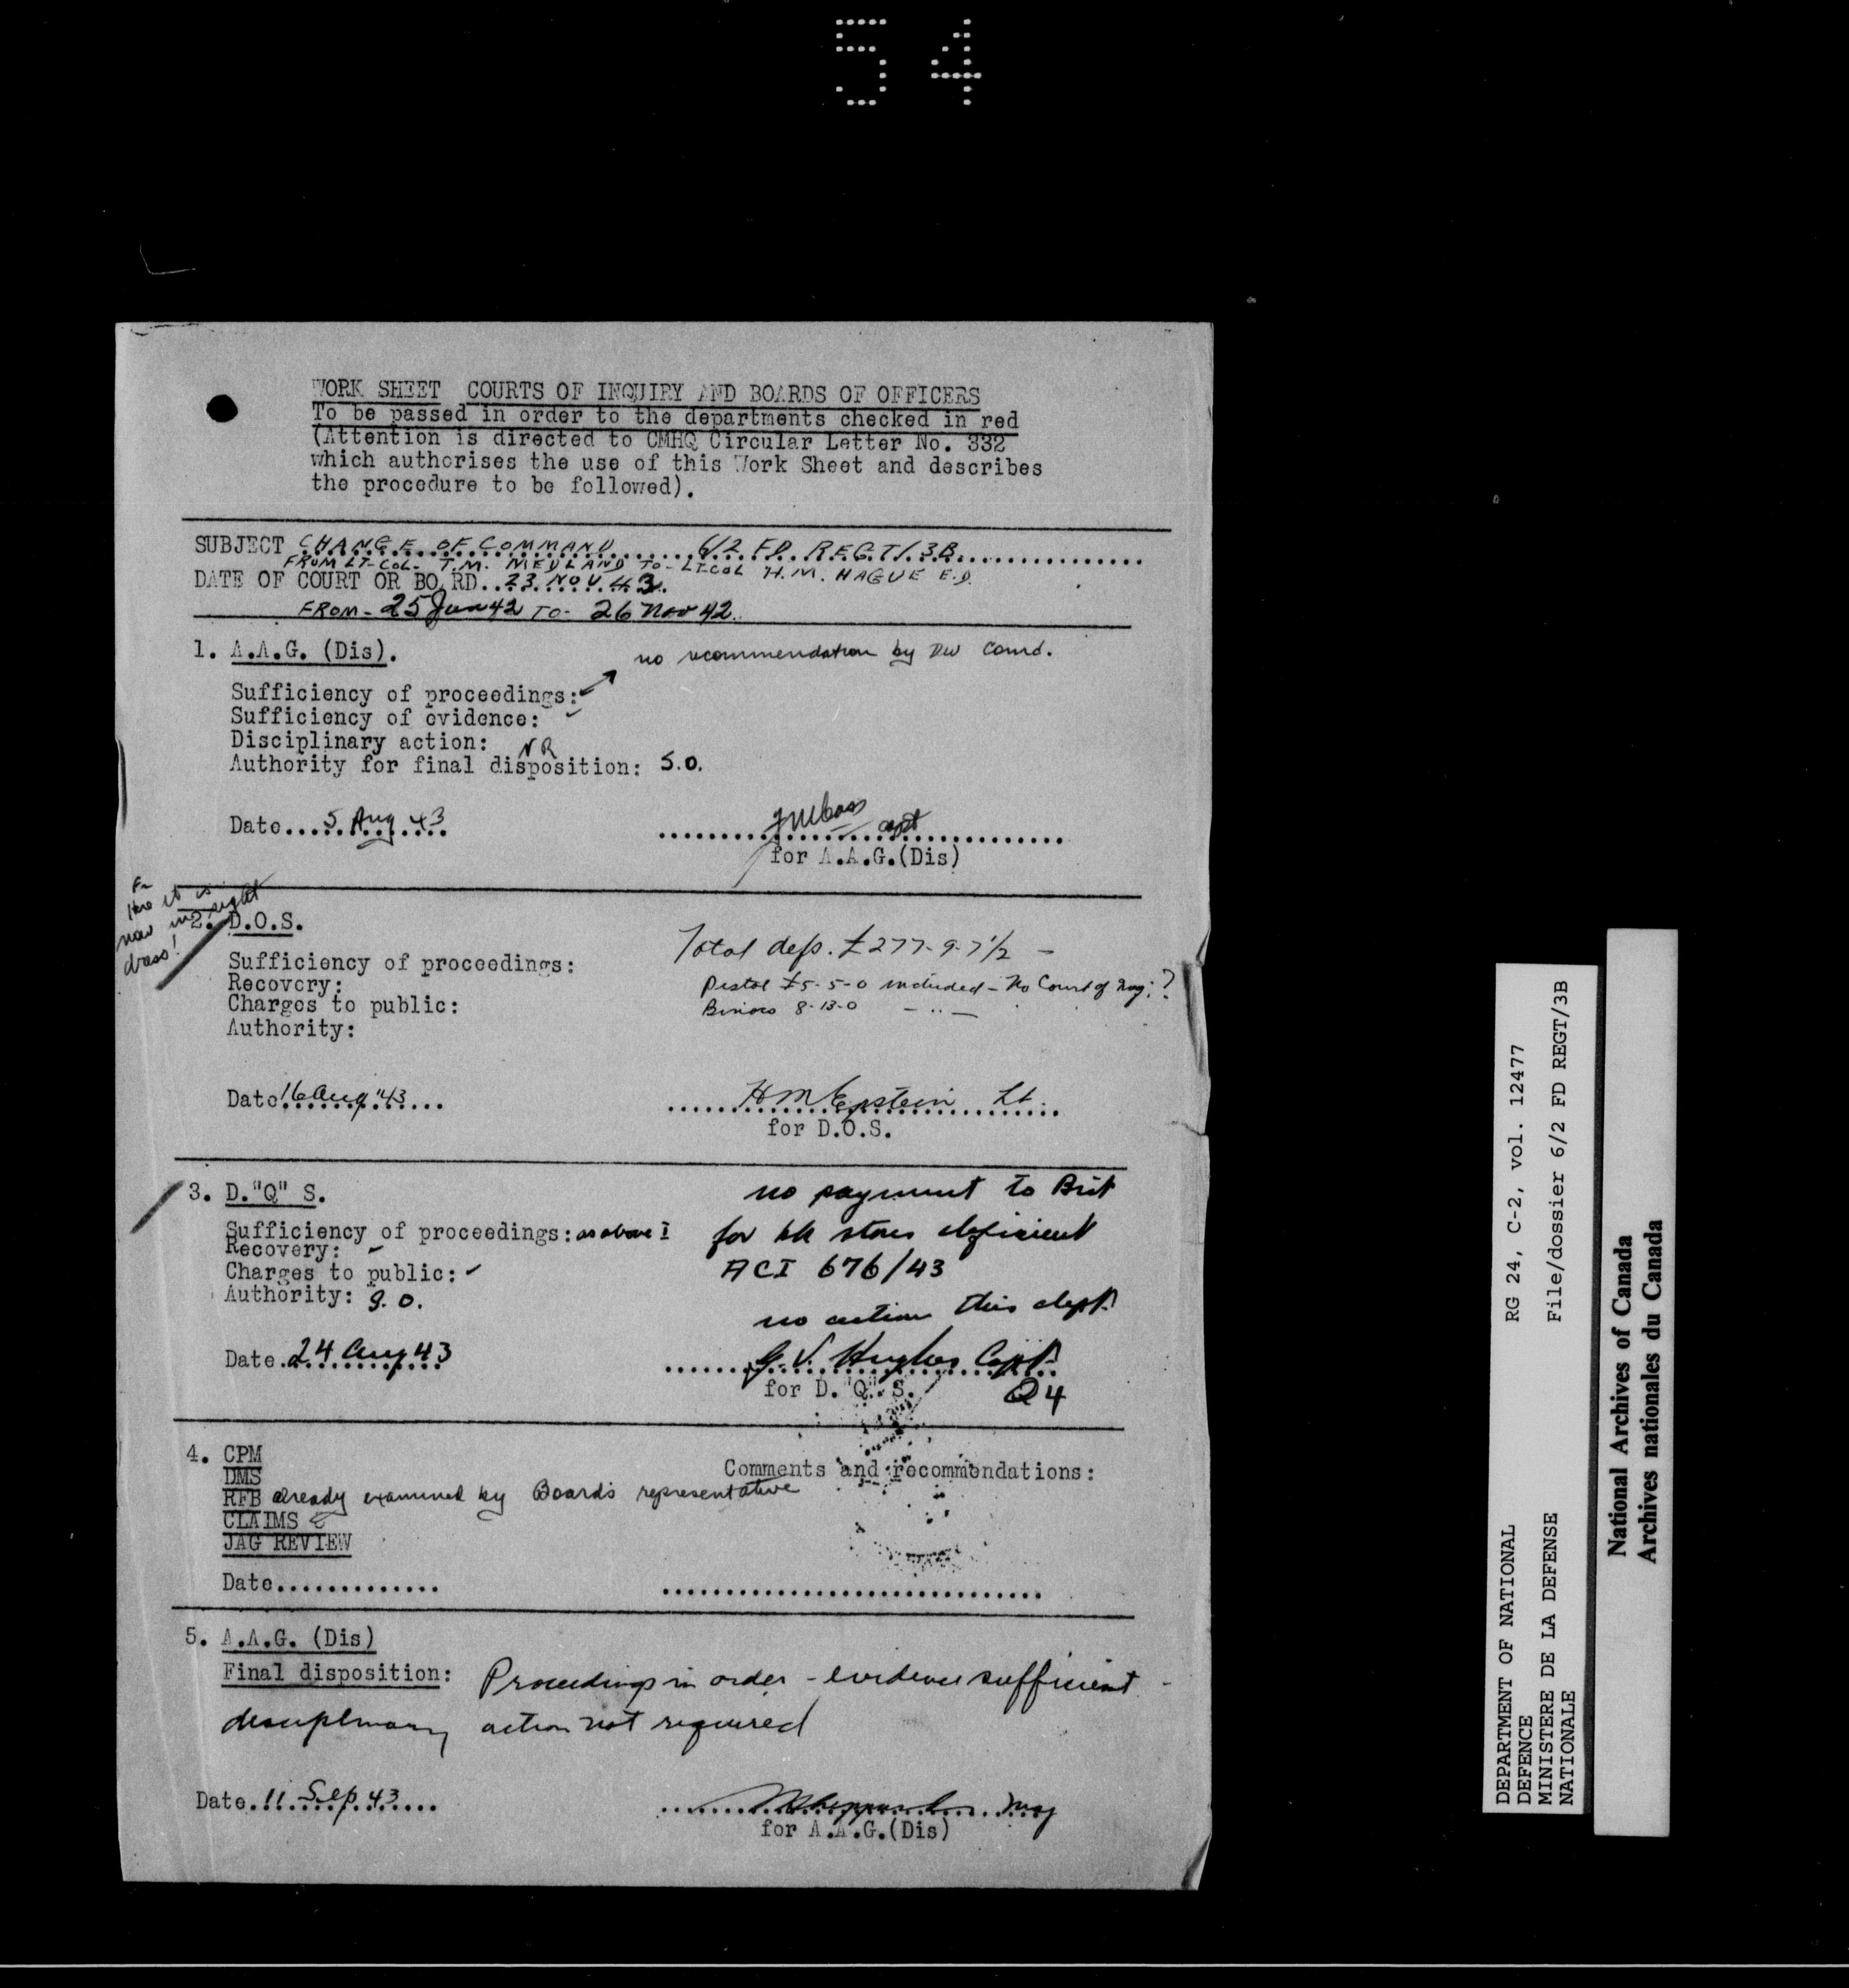 54
WORK SHEET COURTS OF INQUIRY AND BOARDS OF OFFICERS
To be passed in order to the departments checked in red
(Attention is directed to CMHQ Circular Letter No. 332
which authorises the use of this Work Sheet and describes
the procedure to be followed).
SUBJECT CHANGE OF COMMAND 6/2 FD. REGT/3B
FROM LT-COL. T.M. MEDLAND TO - LT COL H.M. HAGUE E.D.
DATE OF COURT OR BOARD..23 NOV. 43.
FROM - 25 Jun 42 TO - 26 Nov 42.
1. A.A.G. (Dis).
no recommendation by Div Comd.
Sufficiency of proceedings:
Sufficiency of evidence:
Disciplinary action: NR
Authority for final disposition: S.O.
Date....5 Aug 43
capt
for A.A.G.(Dis)
Here it is
now in right
dress!
2. D.O.S.
Total defs. £277-9-7 1/2 -
Sufficiency of proceedings:
Recovery:
Pistol £5-5-0 included - No Court of Inq:?
Charges to public:
Binocs 8-13-0 - .. -
Authority:
Date 16 Aug 43
H M Epstein Lt.
for D.O.S.
3. D."Q" S.
no payment to Brit
Sufficiency of proceedings: as above 1
for stores deficient
Recovery:
Charges to public:
ACI 676/43
Authority: S.O.
no action this dept.
Date.24 Aug 43
G.V. Hughes Capt
for D."Q" S.
Q4
4. CPM
Comments and recommendations:
DMS
RFB already examined by Board's representative
CLAIMS
JAG REVIEW
Date.............
5. A.A.G. (Dis)
Final disposition: Proceedings in order - evidence sufficient -
disciplinary action not required
Date.11 Sep 43
Maj
for A.A.G.(Dis)
DEPARTMENT OF NATIONAL DEFENCE
RG 24, C-2, vol. 12477
MINISTERE DE LA DEFENSE NATIONALE
File/dossier 6/2 FD REGT/3B
National Archives of Canada
Archives nationales du Canada